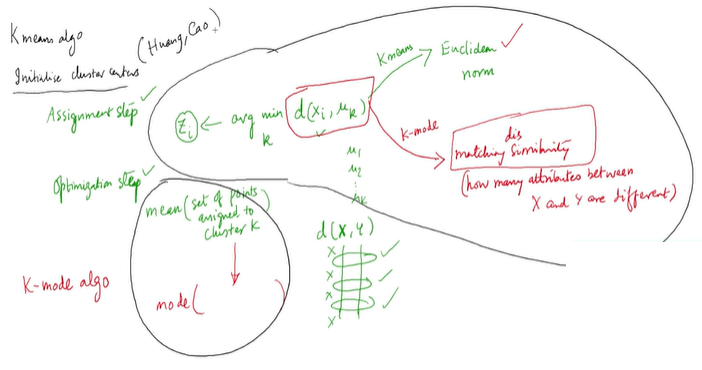 K means algo
(Huang, Cao)
Initialise cluster centers
Assignment step ✓
z_i ← arg min d(x_i, μ_k)
k
✓
K means
Euclidean ✓
norm
K-mode
dis
matching similarity
(how many attributes between
X and Y are different)
μ_1
μ_2
⋮
μ_k
Optimization step ✓
mean(set of points
assigned to
cluster k)
d(X, Y)
x ✓
x ✓
x ✓
x
K-mode algo
mode( )